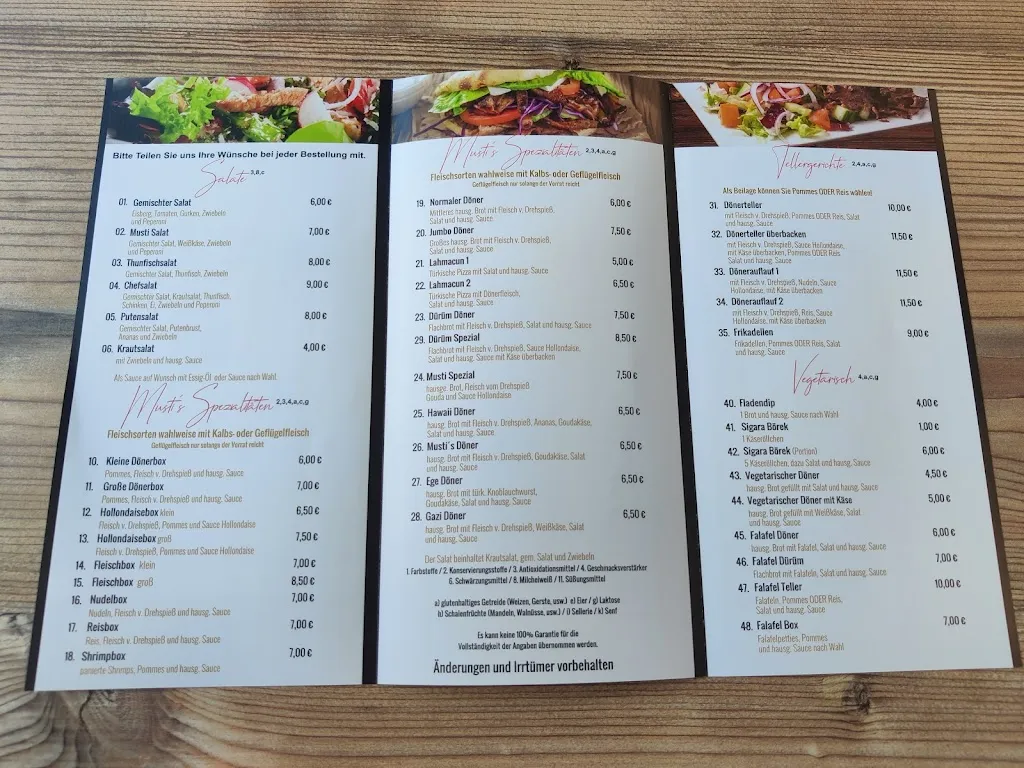 Bitte Teilen Sie uns Ihre Wünsche bei jeder Bestellung mit.
Salate 3,8,c
01. Gemischter Salat 6,00 €
Eisberg, Tomaten, Gurken, Zwiebeln
und Peperoni
02. Musti Salat 7,00 €
Gemischter Salat, Weißkäse, Zwiebeln
und Peperoni
03. Thunfischsalat 8,00 €
Gemischter Salat, Thunfisch, Zwiebeln
04. Chefsalat 9,00 €
Gemischter Salat, Krautsalat, Thunfisch,
Schinken, Ei, Zwiebeln und Peperoni
05. Putensalat 8,00 €
Gemischter Salat, Putenbrust,
Ananas und Zwiebeln
06. Krautsalat 4,00 €
mit Zwiebeln und hausg. Sauce
Als Sauce auf Wunsch mit Essig-Öl oder Sauce nach Wahl
Musti's Spezalitäten 2,3,4,a,c,g
Fleischsorten wahlweise mit Kalbs- oder Geflügelfleisch
Geflügelfleisch nur solange der Vorrat reicht
10. Kleine Dönerbox 6,00 €
Pommes, Fleisch v. Drehspieß und hausg. Sauce
11. Große Dönerbox 7,00 €
Pommes, Fleisch v. Drehspieß und hausg. Sauce
12. Hollondaisebox klein 6,50 €
Fleisch v. Drehspieß, Pommes und Sauce Hollondaise
13. Hollondaisebox groß 7,50 €
Fleisch v. Drehspieß, Pommes und Sauce Hollondaise
14. Fleischbox klein 7,00 €
15. Fleischbox groß 8,50 €
16. Nudelbox 7,00 €
Nudeln, Fleisch v. Drehspieß und hausg. Sauce
17. Reisbox 7,00 €
Reis, Fleisch v. Drehspieß und hausg. Sauce
18. Shrimpbox 7,00 €
panierte Shrimps, Pommes und hausg. Sauce
Musti's Spezalitäten 2,3,4,a,c,g
Fleischsorten wahlweise mit Kalbs- oder Geflügelfleisch
Geflügelfleisch nur solange der Vorrat reicht
19. Normaler Döner 6,00 €
Mittleres hausg. Brot mit Fleisch v. Drehspieß,
Salat und hausg. Sauce
20. Jumbo Döner 7,50 €
Großes hausg. Brot mit Fleisch v. Drehspieß,
Salat und hausg. Sauce
21. Lahmacun 1 5,00 €
Türkische Pizza mit Salat und hausg. Sauce
22. Lahmacun 2 6,50 €
Türkische Pizza mit Dönerfleisch,
Salat und hausg. Sauce
23. Dürüm Döner 7,50 €
Flachbrot mit Fleisch v. Drehspieß, Salat und hausg. Sauce
29. Dürüm Spezial 8,50 €
Flachbrot mit Fleisch v. Drehspieß, Sauce Hollondaise,
Salat und hausg. Sauce mit Käse überbacken
24. Musti Spezial 7,50 €
hausge. Brot, Fleisch vom Drehspieß
Gouda und Sauce Hollondaise
25. Hawaii Döner 6,50 €
hausg. Brot mit Fleisch v. Drehspieß, Ananas, Goudakäse,
Salat und hausg. Sauce
26. Musti´s Döner 6,50 €
hausg. Brot mit Fleisch v. Drehspieß, Goudakäse, Salat
und hausg. Sauce
27. Ege Döner 6,50 €
hausg. Brot mit türk. Knoblauchwurst,
Goudakäse, Salat und hausg. Sauce
28. Gazi Döner 6,50 €
hausg. Brot mit Fleisch v. Drehspieß, Weißkäse, Salat
und hausg. Sauce
Der Salat beinhaltet Krautsalat, gem. Salat und Zwiebeln
1. Farbstoffe / 2. Konservierungsstoffe / 3. Antioxidationsmittel / 4. Geschmacksverstärker
6. Schwärzungsmittel / 8. Milcheiweiß / 11. Süßungsmittel
a) glutenhaltiges Getreide (Weizen, Gerste, usw.) e) Eier / g) Laktose
h) Schalenfrüchte (Mandeln, Walnüsse, usw.) / i) Sellerie / k) Senf
Es kann keine 100% Garantie für die
Vollständigkeit der Angaben übernommen werden.
Änderungen und Irrtümer vorbehalten
Tellergerichte 2,4,a,c,g
Als Beilage können Sie Pommes ODER Reis wählen!
31. Dönerteller 10,00 €
mit Fleisch v. Drehspieß, Pommes ODER Reis, Salat
und hausg. Sauce
32. Dönerteller überbacken 11,50 €
mit Fleisch v. Drehspieß, Sauce Hollondaise,
mit Käse überbacken, Pommes ODER Reis
Salat und hausg. Sauce
33. Dönerauflauf 1 11,50 €
mit Fleisch v. Drehspieß, Nudeln, Sauce
Hollondaise, mit Käse überbacken
34. Dönerauflauf 2 11,50 €
mit Fleisch v. Drehspieß, Reis, Sauce
Hollondaise, mit Käse überbacken
35. Frikadellen 9,00 €
Frikadellen, Pommes ODER Reis, Salat
und hausg. Sauce
Vegetarisch 4,a,c,g
40. Fladendip 4,00 €
1 Brot und hausg. Sauce nach Wahl
41. Sigara Börek 1,00 €
1 Käseröllchen
42. Sigara Börek (Portion) 6,00 €
5 Käseröllchen, dazu Salat und hausg. Sauce
43. Vegetarischer Döner 4,50 €
hausg. Brot gefüllt mit Salat und hausg. Sauce
44. Vegetarischer Döner mit Käse 5,00 €
hausg. Brot gefüllt mit Weißkäse, Salat
und hausg. Sauce
45. Falafel Döner 6,00 €
hausg. Brot mit Falafel, Salat und hausg. Sauce
46. Falafel Dürüm 7,00 €
Flachbrot mit Falafeln, Salat und hausg. Sauce
47. Falafel Teller 10,00 €
Falafeln, Pommes ODER Reis,
Salat und hausg. Sauce
48. Falafel Box 7,00 €
Falafelpetties, Pommes
und hausg. Sauce nach Wahl